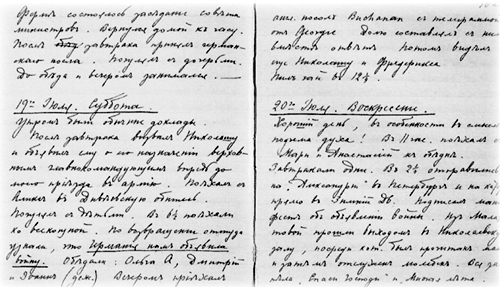 Ферме состоялось заседание совѣта
министровъ. Вернулся домой къ часу.
Послѣ завтрака принялъ герман-
скаго посла. Погулялъ съ дочерьми.
До обѣда и вечеромъ занимался. —
19го Іюля. Суббота.
Утромъ были обычные доклады.
Послѣ завтрака вызвалъ Николашу
и объявилъ ему о его назначеніи верхов-
нымъ главнокомандующимъ впредь до
моего пріѣзда въ армію. Поѣхалъ съ
Аликсъ въ Дивѣевскую обитель.
Погулялъ съ дѣтьми. Въ 6½ поѣхали
ко всенощной. По возвращеніи оттуда
узнали, что Германія намъ объявила
войну. Обѣдали: Ольга А, Дмитрій
и Іоаннъ (деж.) Вечеромъ пріѣхалъ
англ. посолъ Buchanan съ телеграммой
отъ Georgie. Долго составлялъ съ нимъ
вмѣстѣ отвѣтъ. Потомъ видѣлъ еще
Николашу и Фредерикса.
Пили чай въ 12¼.
20го Іюля. Воскресенье.
Хорошій день, въ особенности въ смыслѣ
подъема духа! Въ 11 час. поѣхалъ съ
Мари и Анастасіей къ обѣднѣ.
Завтракали одни. Въ 2¼ отправились
на „Александріи" въ Петербургъ и на кар
прямо въ Зимній Дв. Подписалъ мани-
фестъ объ объявленіи войны. Изъ Малахи-
товой прошли выходомъ въ Николаевскую
залу, посреди кот. былъ прочитанъ ман
и затѣмъ отслуженъ молебенъ. Вся зала
пѣла „Спаси Господи" и „Многая лѣта".